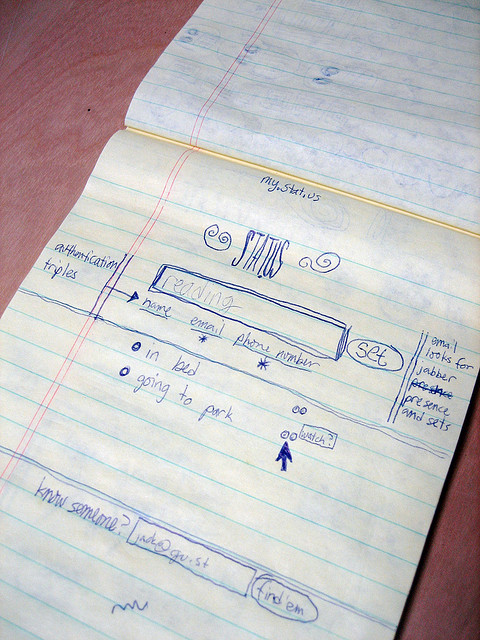 my.stat.us
STATUS
authentication
triples
reading
name email phone number
set
in bed
going to park
watch?
email
looks for
jabber
presence
presence
and sets
know someone?
jack@gu.st
find 'em